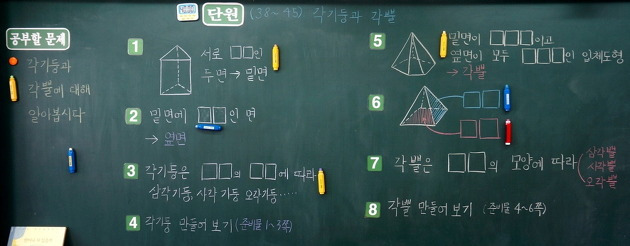 단원 (38~45) 각기둥과 각뿔
공부할 문제
각기둥과
각뿔에 대해
알아봅시다
1 서로 □□인
두 면 → 밑면
2 밑면에 □□인 면
→ 옆면
3 각기둥은 □□의 □□에 따라
삼각기둥, 사각기둥 오각기둥.....
4 각기둥 만들어 보기 (준비물 1~3쪽)
5 밑면이 □□□이고
옆면이 모두 □□□인 입체도형
→ 각뿔
6 □□
□□
7 각뿔은 □□의 모양에 따라
삼각뿔
사각뿔
오각뿔
8 각뿔 만들어 보기 (준비물 4~6쪽)